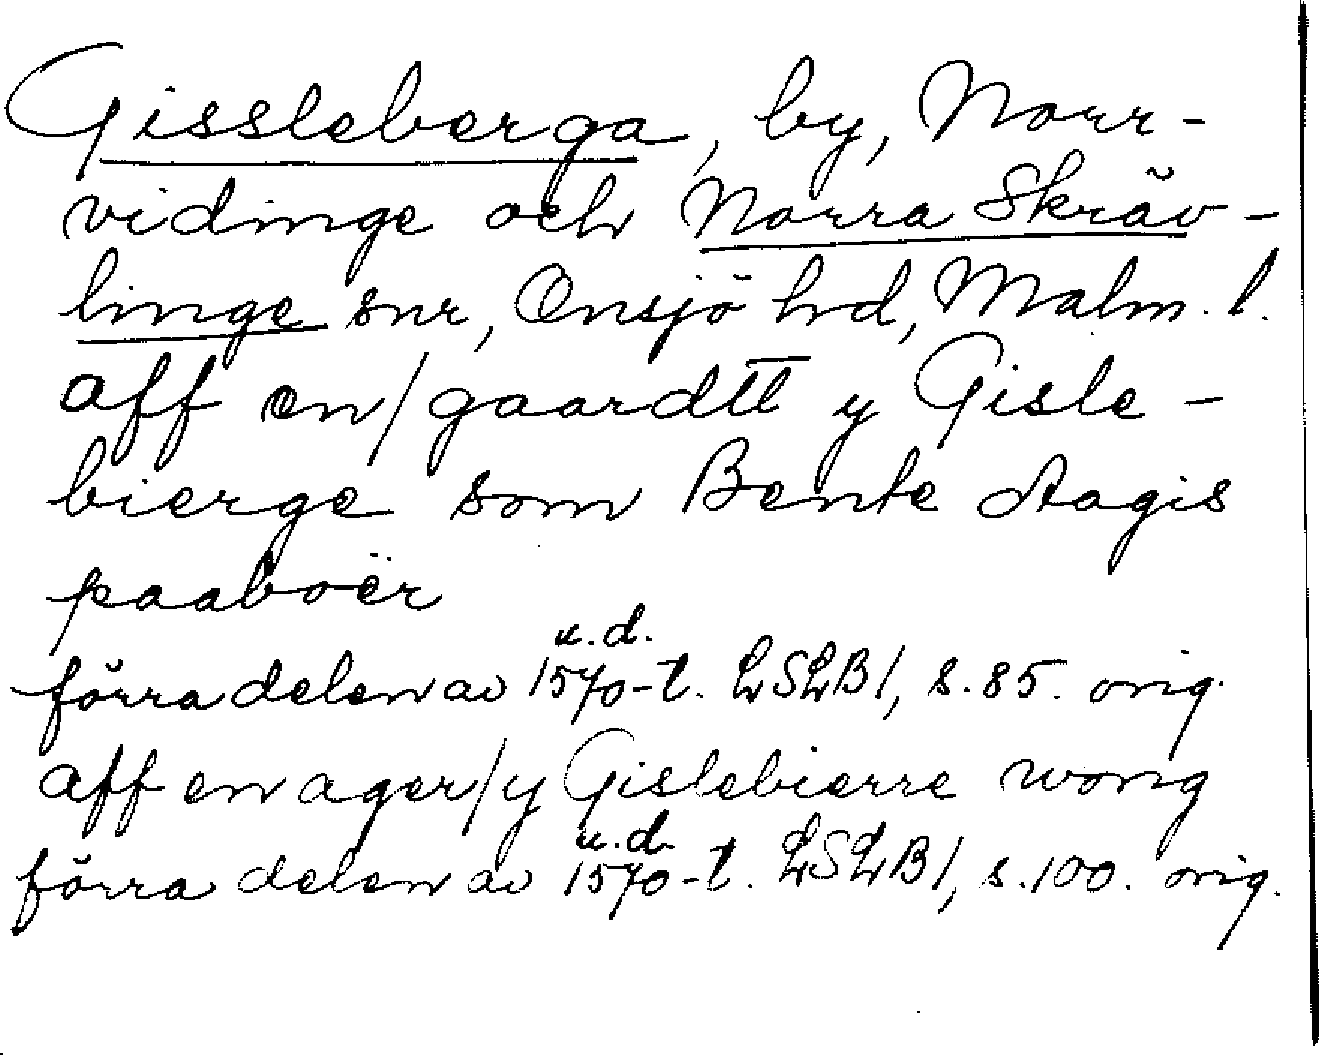 Gissleberga, by, Norr-
vidinge och Norra Skräv-
linge snr, Onsjö hd, Malm. l.
aff en/gaardtt y Gisle-
bierge som Bente Aagis
paaboër
u.d.
förra delen av 1570-t. LSLB1, s. 85. orig.
aff en ager/y Gislebierre wong
u.d.
förra delen av 1570-t. LSLB1, s. 100. orig.